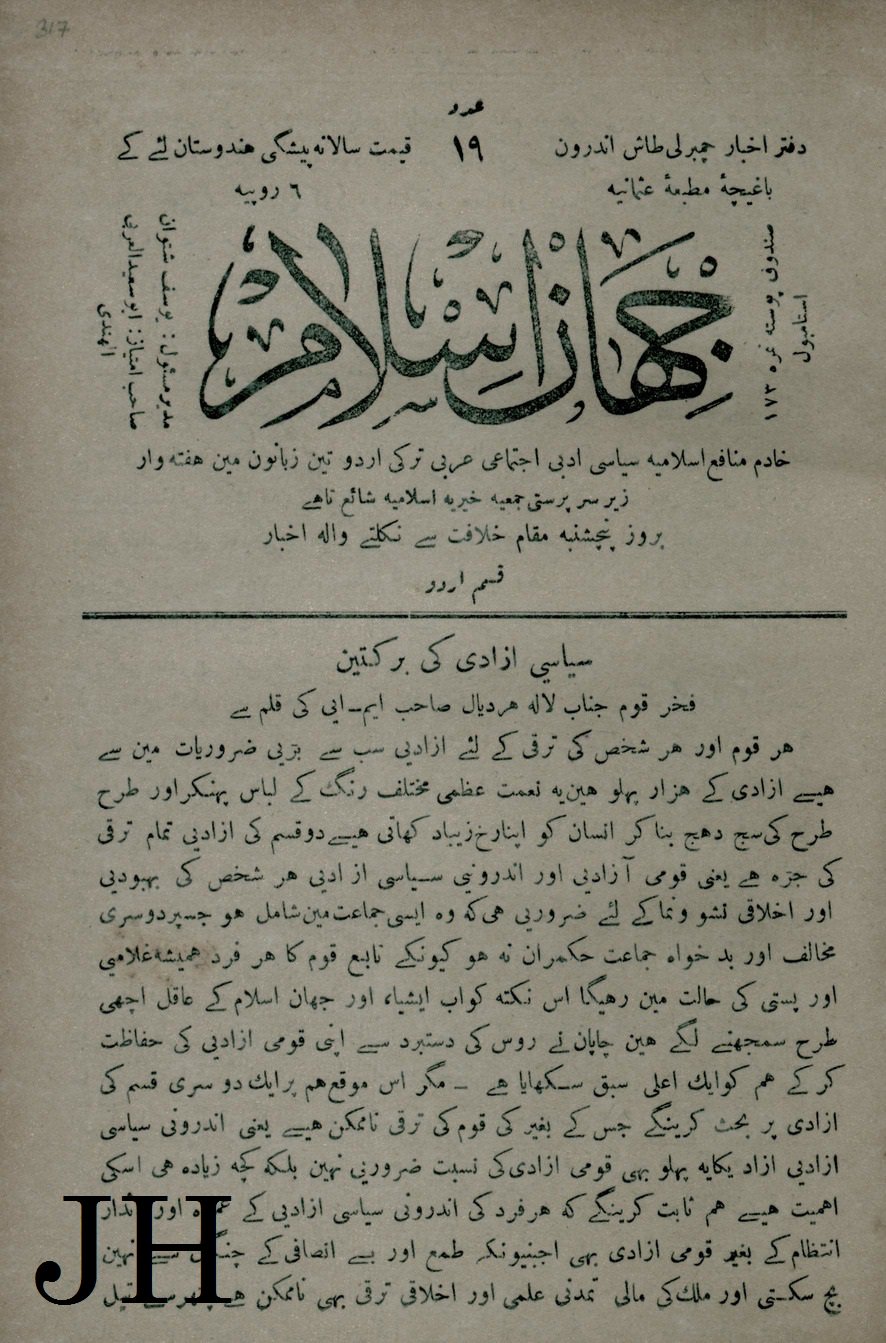 317
عدد
دفتر اخبار چمبرلی طاش اندرون ١٩ قیمت سالانه پیشگی هندوستان لئے کے
باغیچهٔ مطبعهٔ عثمانیه ٦ روپیه
صندوق پوسته نمره ١٧٣
استامبول
جهان اسلام
مدیر مسئول : یوسف شتوان
صاحب امتیاز : ابو سعید العربی
الهندی
خادم منافع اسلامیه سیاسی ادبی اجتماعی عربی ترکی اردو تین زبانون مین هفته وار
زیر سر پرستی جمعیه خیریه اسلامیه شائع تاهے
بروز پنچشنبه مقام خلافت سے نکلتے واله اخبار
قسم اردو
سیاسی ازادی کی برکتین
فخر قوم جناب لاله هردیال صاحب ایم-ایی کی قلم سے
هر قوم اور هر شخص کی ترقی کے لئے ازادیی سب سے بڑیی ضروریات مین سے
هیسے ازادی کے هزار پهلو هین یه نعمت عظمی مختلف رنگ کے لباس پهنکر اور طرح
طرح کی سج دهج بنا کر انسان کو اپنا رخ زیباد کهاتی هیسے دو قسم کی ازادیی تمام ترقی
کی جزه هے یعنی قومی آزادیی اور اندرونیی سیاسی ازادیی هر شخص کی بهبودیی
اور اخلاقی نشو ونما کے لئے ضروریی هی که وه ایسی جماعت مین شامل هو جسپر دوسری
مخالف اور بد خواه جماعت حکمران نه هو کیونکے تابع قوم کا هر فرد همیشه غلامیی
اور پستی کی حالت مین رهیگا اس نکته کواب ایشیاء اور جهان اسلام کے عاقل اچهی
طرح سمجهنے لگے هین جاپان نے روس کی دستبرد سے اپنی قومی ازادیی کی حفاظت
کر کے هم کو ایك اعلی سبق سکهایا هے - مگر اس موقع هم پر ایك دو سری قسم کی
ازادی پر بحث کرینگے جس کے بغیر کی قوم کی ترقی ناممکن هیسے یعنی اندرونی سیاسی
ازادیی ازاد یکایه پهلو بهی قومی ازادی کی نسبت ضروریی نهین بلکه کچه زیاده هی اسکی
اهمیت هیسے هم ثابت کرینگے که هر فرد کی اندرونی سیاسی ازادیی کے اور
انتظام کے بغیر قومی ازادی بهی اجنبیونکے طمع اور بے انصافی کے سے نهین
بچ سکتی اور ملك کی مالی تمدنی علمی اور اخلاقی ترقی بهی ناممکن هے
JH